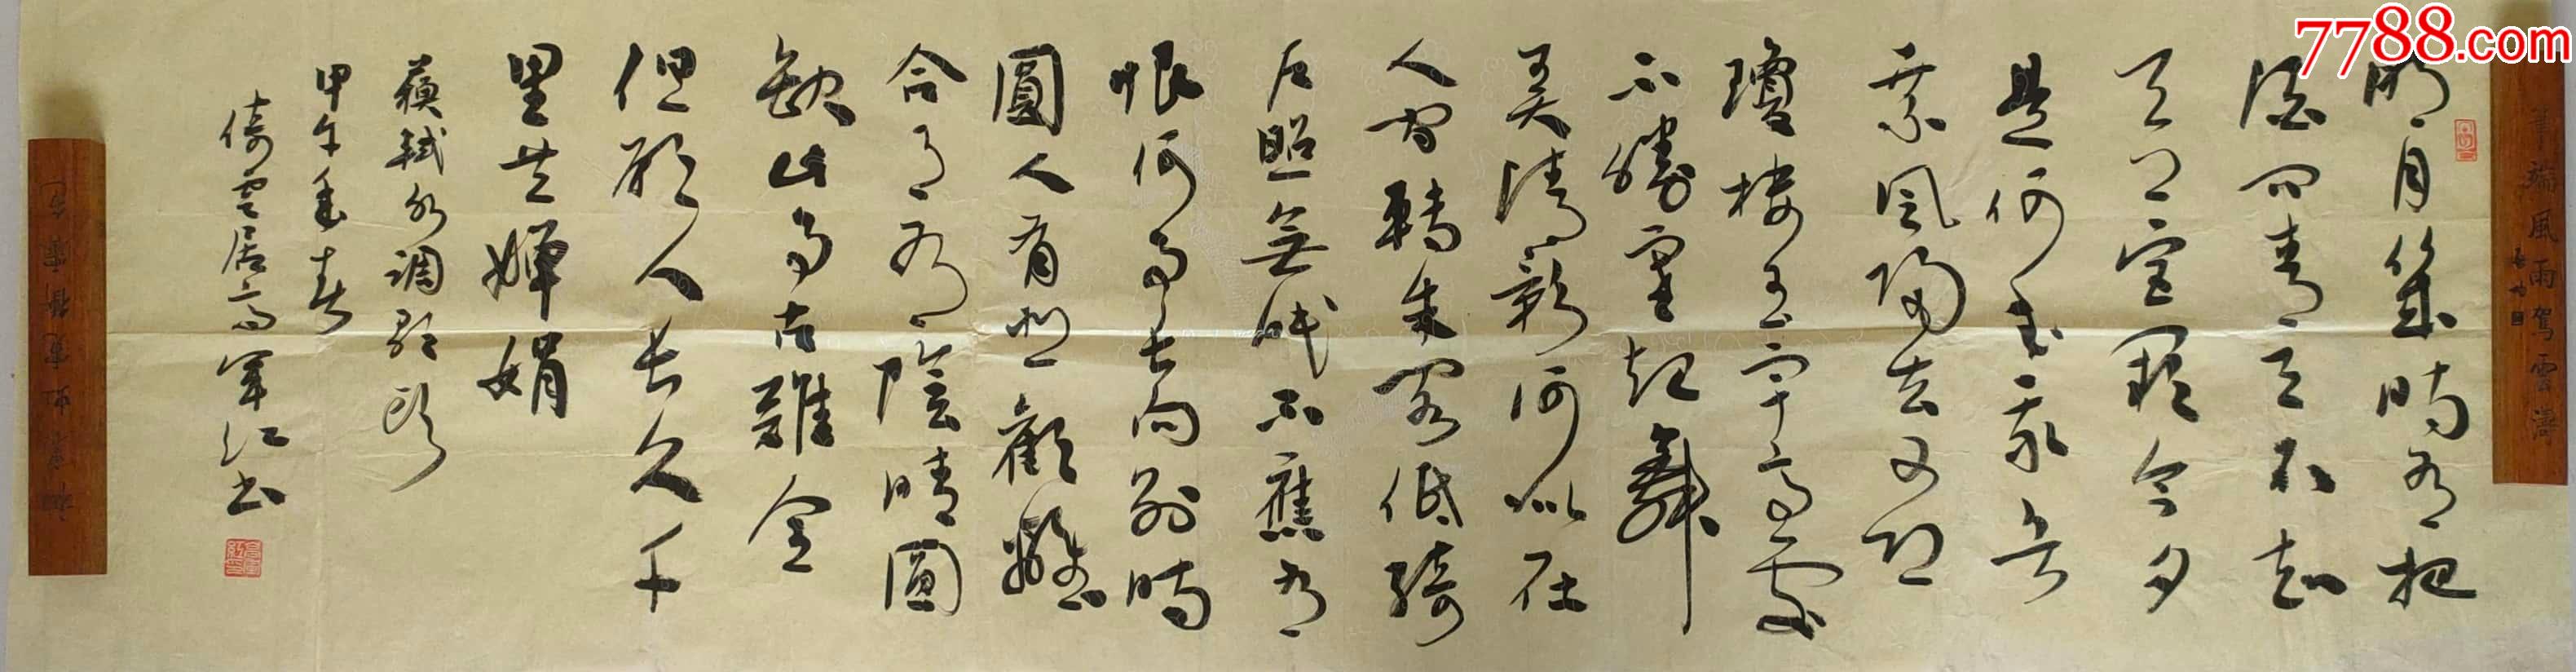 7788.com
筆端風雨駕雲濤
明月幾時有把
酒問青天不知
天上宮闕今夕
是何年我欲
乘風歸去又恐
瓊樓玉宇高處
不勝寒起舞
弄清影何似在
人間轉朱閣低綺
户照無眠不應有
恨何事長向別時
圓人有悲歡離
合月有陰晴圓
缺此事古難全
但願人長久千
里共嬋娟
蘇軾水調歌頭
甲午年春
倚雲居高軍红书